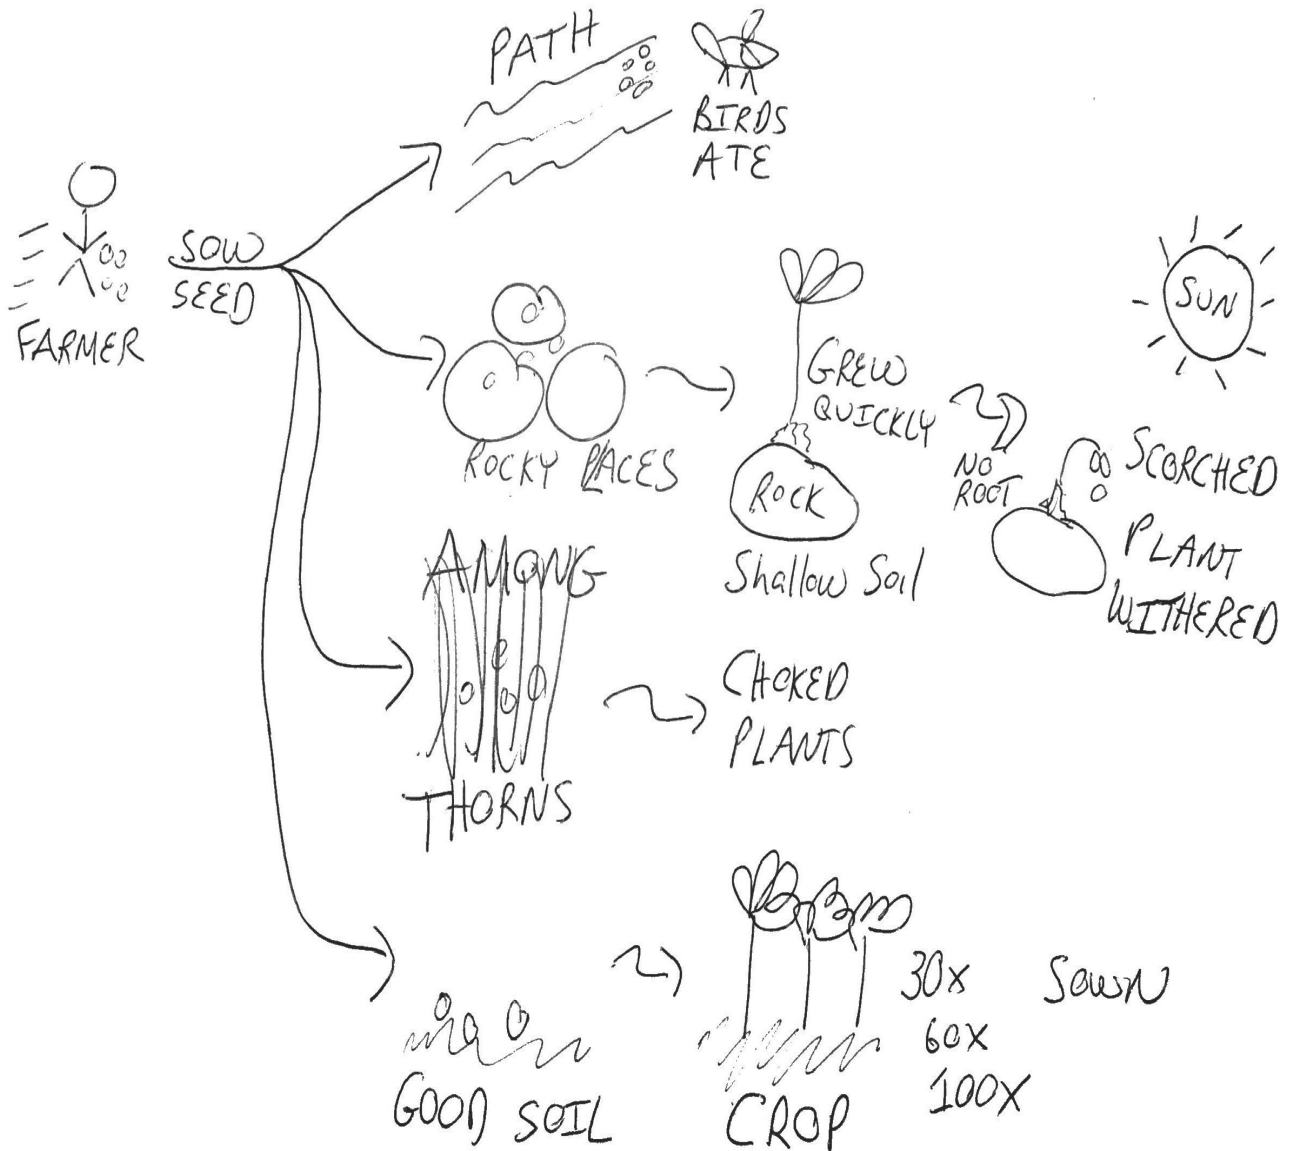 PATH
BIRDS
ATE
FARMER
SOW
SEED
ROCKY PLACES
GREW
QUICKLY
ROCK
Shallow Soil
NO
ROOT
SUN
SCORCHED
PLANT
WITHERED
AMONG
THORNS
CHOKED
PLANTS
GOOD SOIL
CROP
30x
60x
100x
SOWN